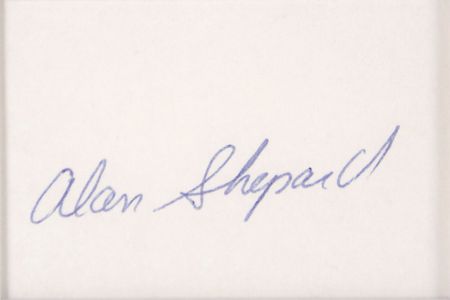 Alan Shepard